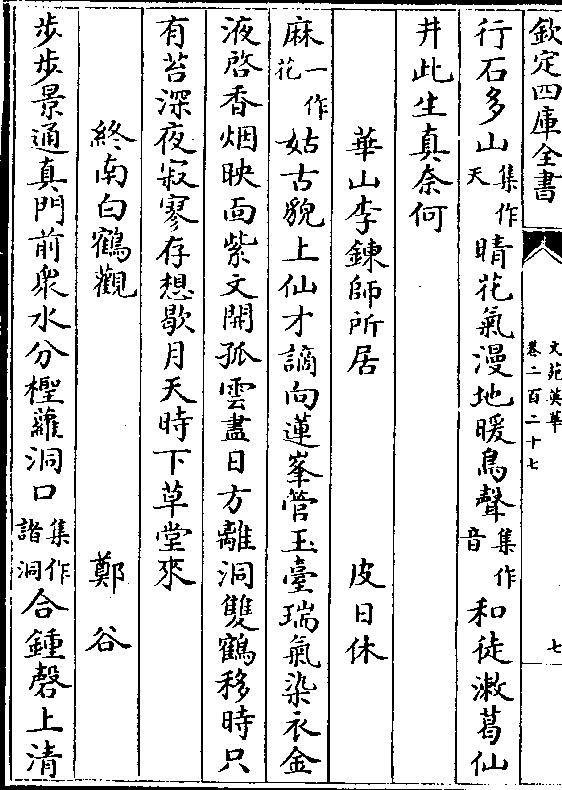 欽定四庫全書
文苑英華
卷二百二十七
七
行石多山集作天晴花氣漫地暖鳥聲集作音和徒漱葛仙
井此生真奈何
華山李鍊師所居 皮日休
麻一作花姑古貌上仙才謫向蓮峯管玉臺瑞氣染衣金
液啓香烟映面紫文開孤雲盡日方離洞雙鶴移時只
有苔深夜寂寥存想歇月天時下草堂來
終南白鶴觀 鄭谷
步步景通真門前衆水分檉蘿洞口集作諳洞合鍾磬上清